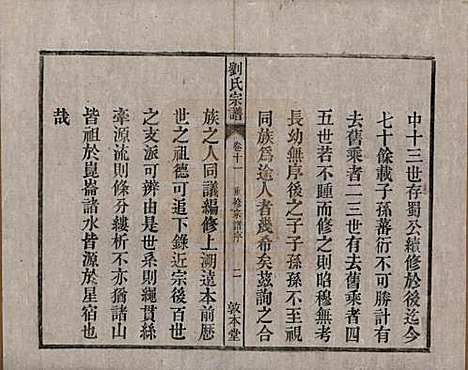 中十三世存蜀公續修於後迄今
七十餘載子孫蕃衍不可勝計有
去舊乘者二三世去舊乘者四
五世若不踵而修之則昭穆無考
長幼無序後之子子孫孫不至視
同族為途人者幾希矣茲詢之合
劉氏宗譜
卷十一
重修宗譜序
二
敦本堂
族之人同議編修上溯遠本前歷
之祖德可追下錄近宗後百世
之支派可辨由是世系則繩貫絲
牽源流則條分縷析不亦猶諸山
皆祖於崑崙諸水皆源於星宿也
哉